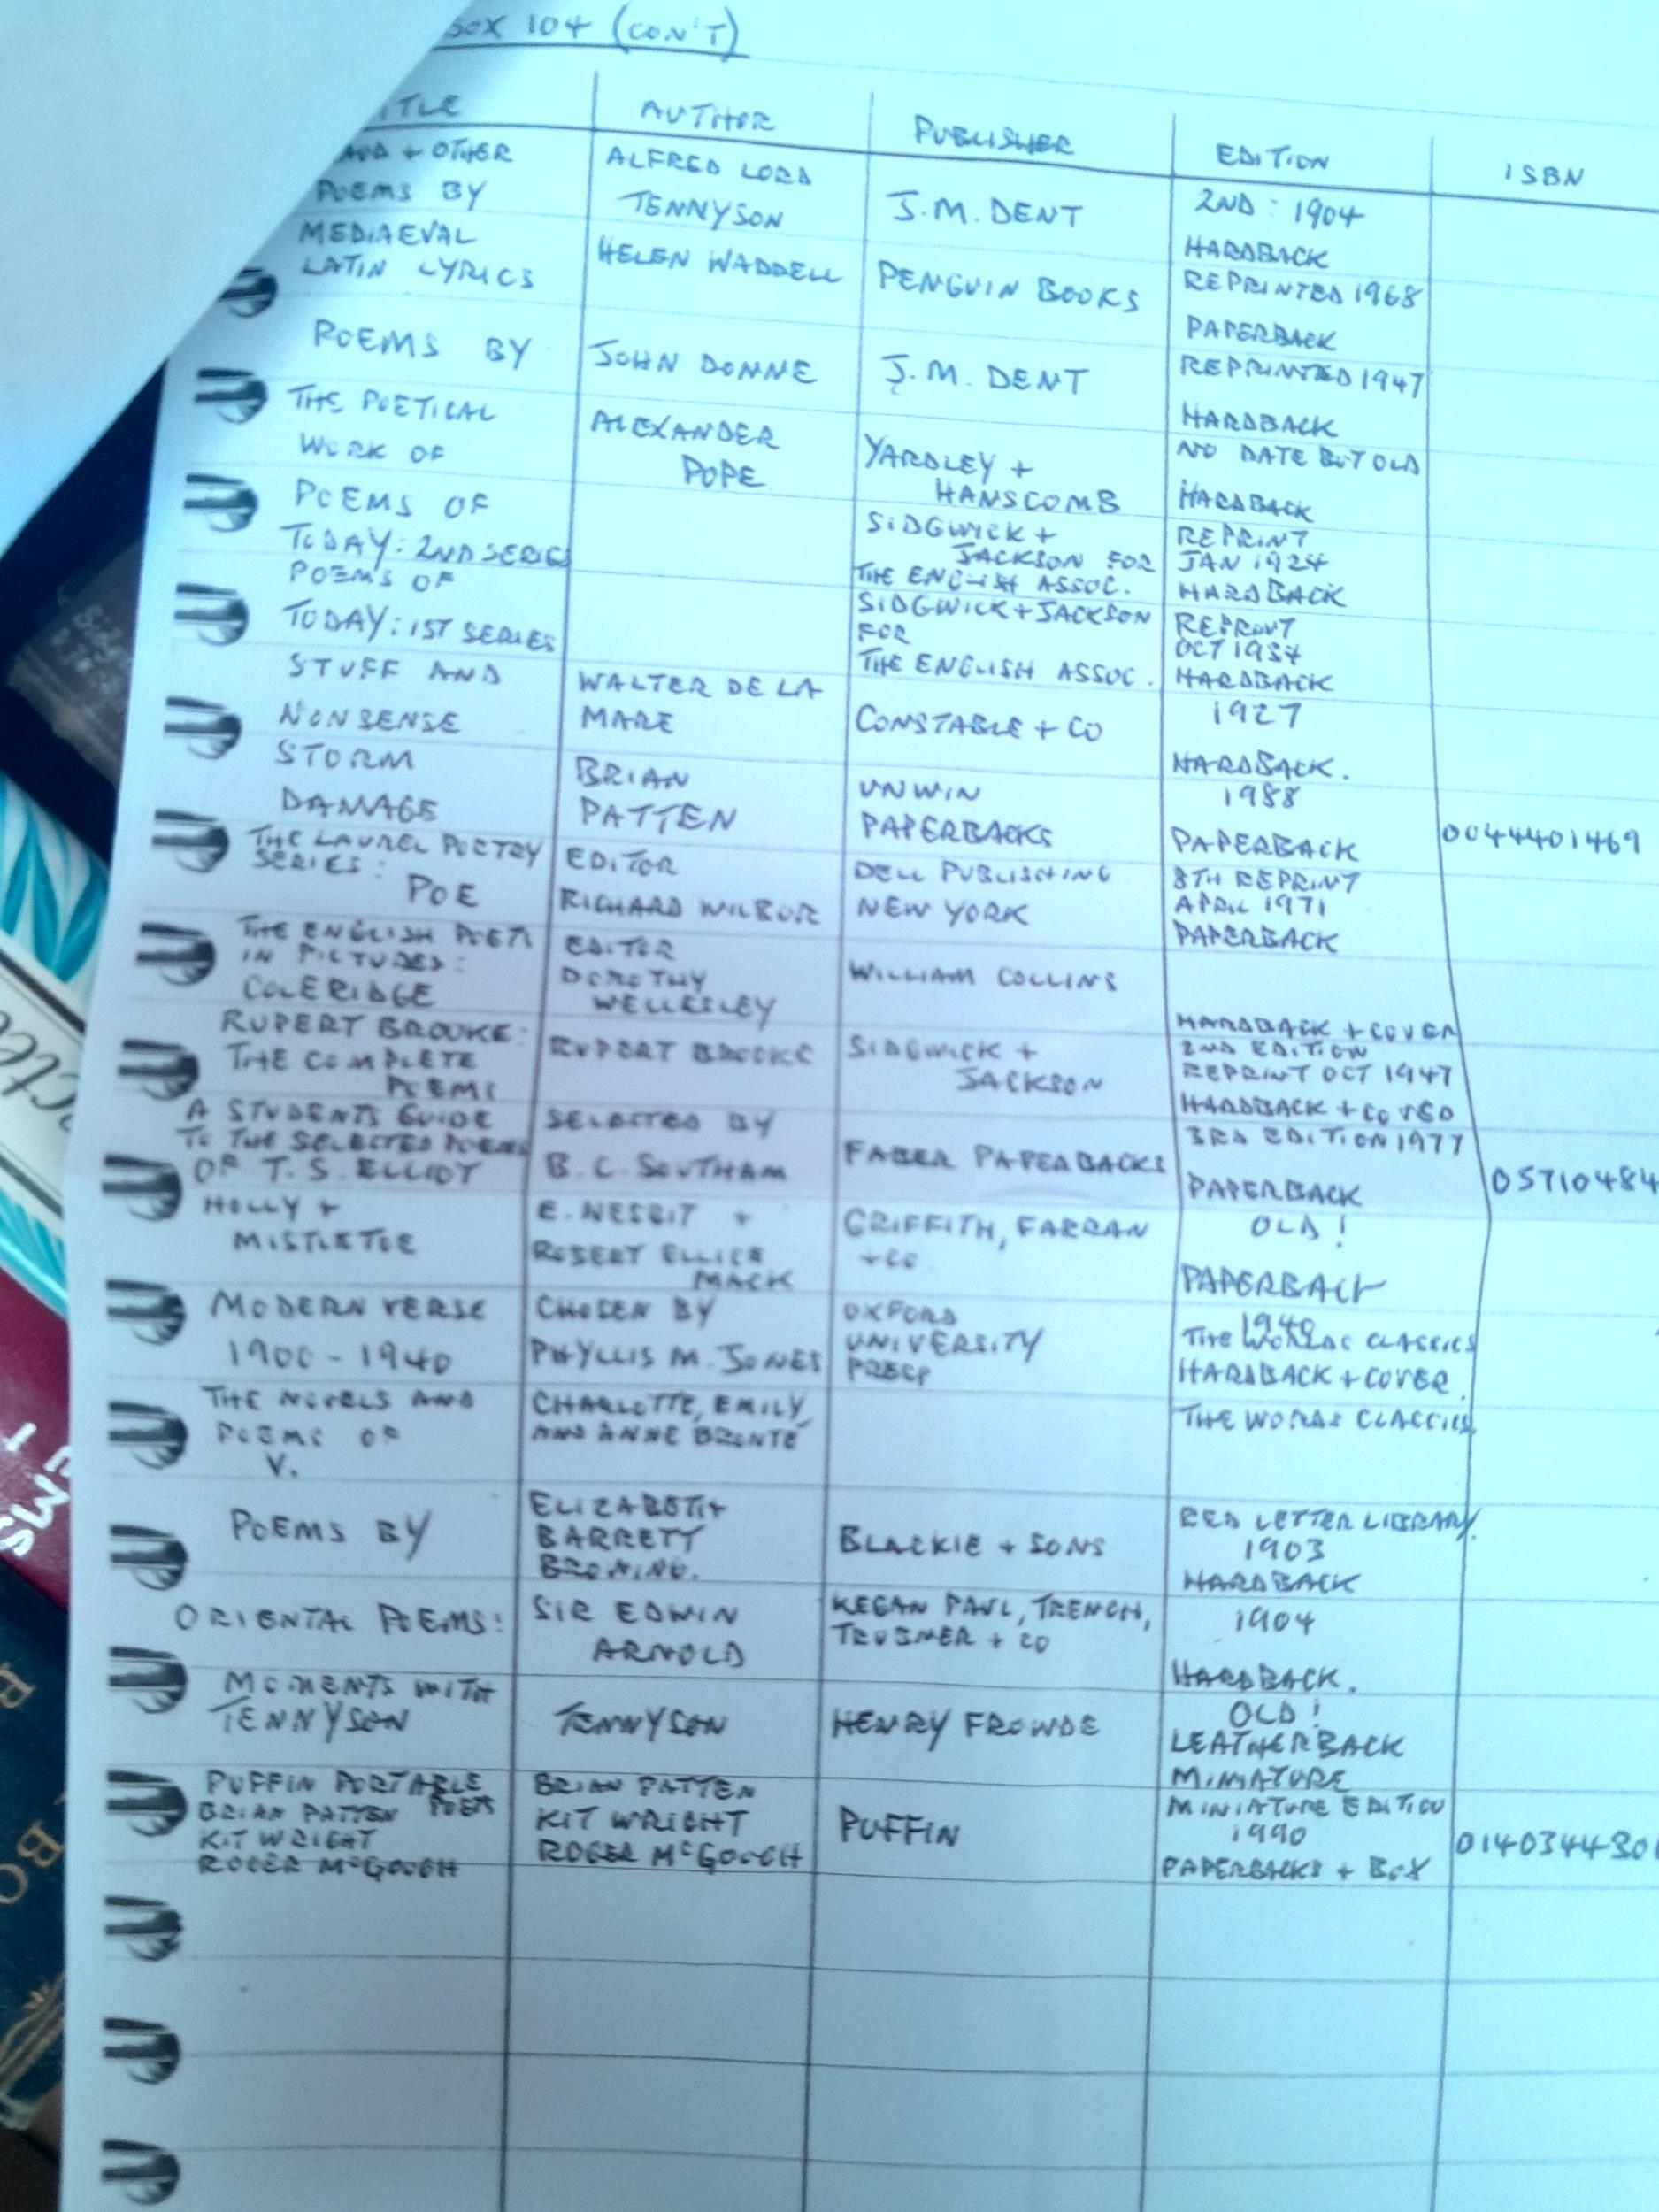 BOX 104 (CON'T)
TITLE AUTHOR PUBLISHER EDITION ISBN
+ OTHER
POEMS BY
ALFRED LORD
TENNYSON
J.M. DENT
2ND: 1904
HARDBACK
MEDIAEVAL
LATIN LYRICS
HELEN WADDELL
PENGUIN BOOKS
REPRINTED 1968
PAPERBACK
POEMS BY
JOHN DONNE
J.M. DENT
REPRINTED 1947
HARDBACK
THE POETICAL
WORK OF
ALEXANDER
POPE
YARDLEY +
HANSCOMB
NO DATE BUT OLD
HARDBACK
POEMS OF
TODAY: 2ND SERIES
SIDGWICK +
JACKSON FOR
THE ENGLISH ASSOC.
REPRINT
JAN 1924
HARDBACK
POEMS OF
TODAY: 1ST SERIES
SIDGWICK + JACKSON
FOR
THE ENGLISH ASSOC.
REPRINT
OCT
HARDBACK
STUFF AND
NONSENSE
WALTER DE LA
MARE
CONSTABLE + CO
1927
HARDBACK.
STORM
DAMAGE
BRIAN
PATTEN
UNWIN
PAPERBACKS
1988
PAPERBACK
0044401469
THE LAUREL POETRY
SERIES:
POE
EDITOR
RICHARD WILBUR
DELL PUBLISHING
NEW YORK
8TH REPRINT
APRIL 1971
PAPERBACK
THE ENGLISH POETS
IN PICTURES:
COLERIDGE
EDITOR
DOROTHY
WELLESLEY
WILLIAM COLLINS
HARDBACK + COVER
RUPERT BROOKE:
THE COMPLETE
POEMS
RUPERT BROOKE
SIDGWICK +
JACKSON
2ND EDITION
REPRINT OCT 1947
HARDBACK + COVER
A STUDENTS GUIDE
TO THE SELECTED POEMS
OF T.S. ELLIOT
SELECTED BY
B.C. SOUTHAM
FABER PAPERBACKS
3RD EDITION 1977
PAPERBACK
05710484
HOLLY +
MISTLETOE
E. NESBIT +
ROBERT ELLICE
MACK
GRIFFITH, FARRAN
+ CO
OLD!
PAPERBACK
MODERN VERSE
1900 - 1940
CHOSEN BY
PHYLLIS M. JONES
OXFORD
UNIVERSITY
PRESS
1940
THE WORLDS CLASSICS
HARDBACK + COVER.
THE NOVELS AND
POEMS OF
V.
CHARLOTTE, EMILY,
AND ANNE BRONTE
THE WORLDS CLASSICS
POEMS BY
ELIZABETH
BARRETT
BROWING.
BLACKIE + SONS
RED LETTER LIBRARY.
1903
HARDBACK
ORIENTAL POEMS:
SIR EDWIN
ARNOLD
KEGAN PAUL, TRENCH,
TRUBNER + CO
1904
HARDBACK.
MOMENTS WITH
TENNYSON
TENNYSON
HENRY FROWDE
OLD!
LEATHERBACK
MINIATURE
PUFFIN PORTABLE
POETS
BRIAN PATTEN
KIT WRIGHT
ROGER McGOUGH
BRIAN PATTEN
KIT WRIGHT
ROGER McGOUGH
PUFFIN
MINIATURE EDITION
1990
PAPERBACKS + BOX
014034480